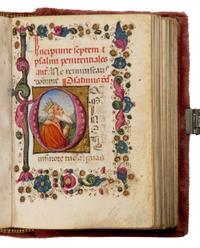 Incipiunt septem
psalmi penitentiales
ant. Ne reminiscaris
domine. Psalmus dd
in furore tuo arguas